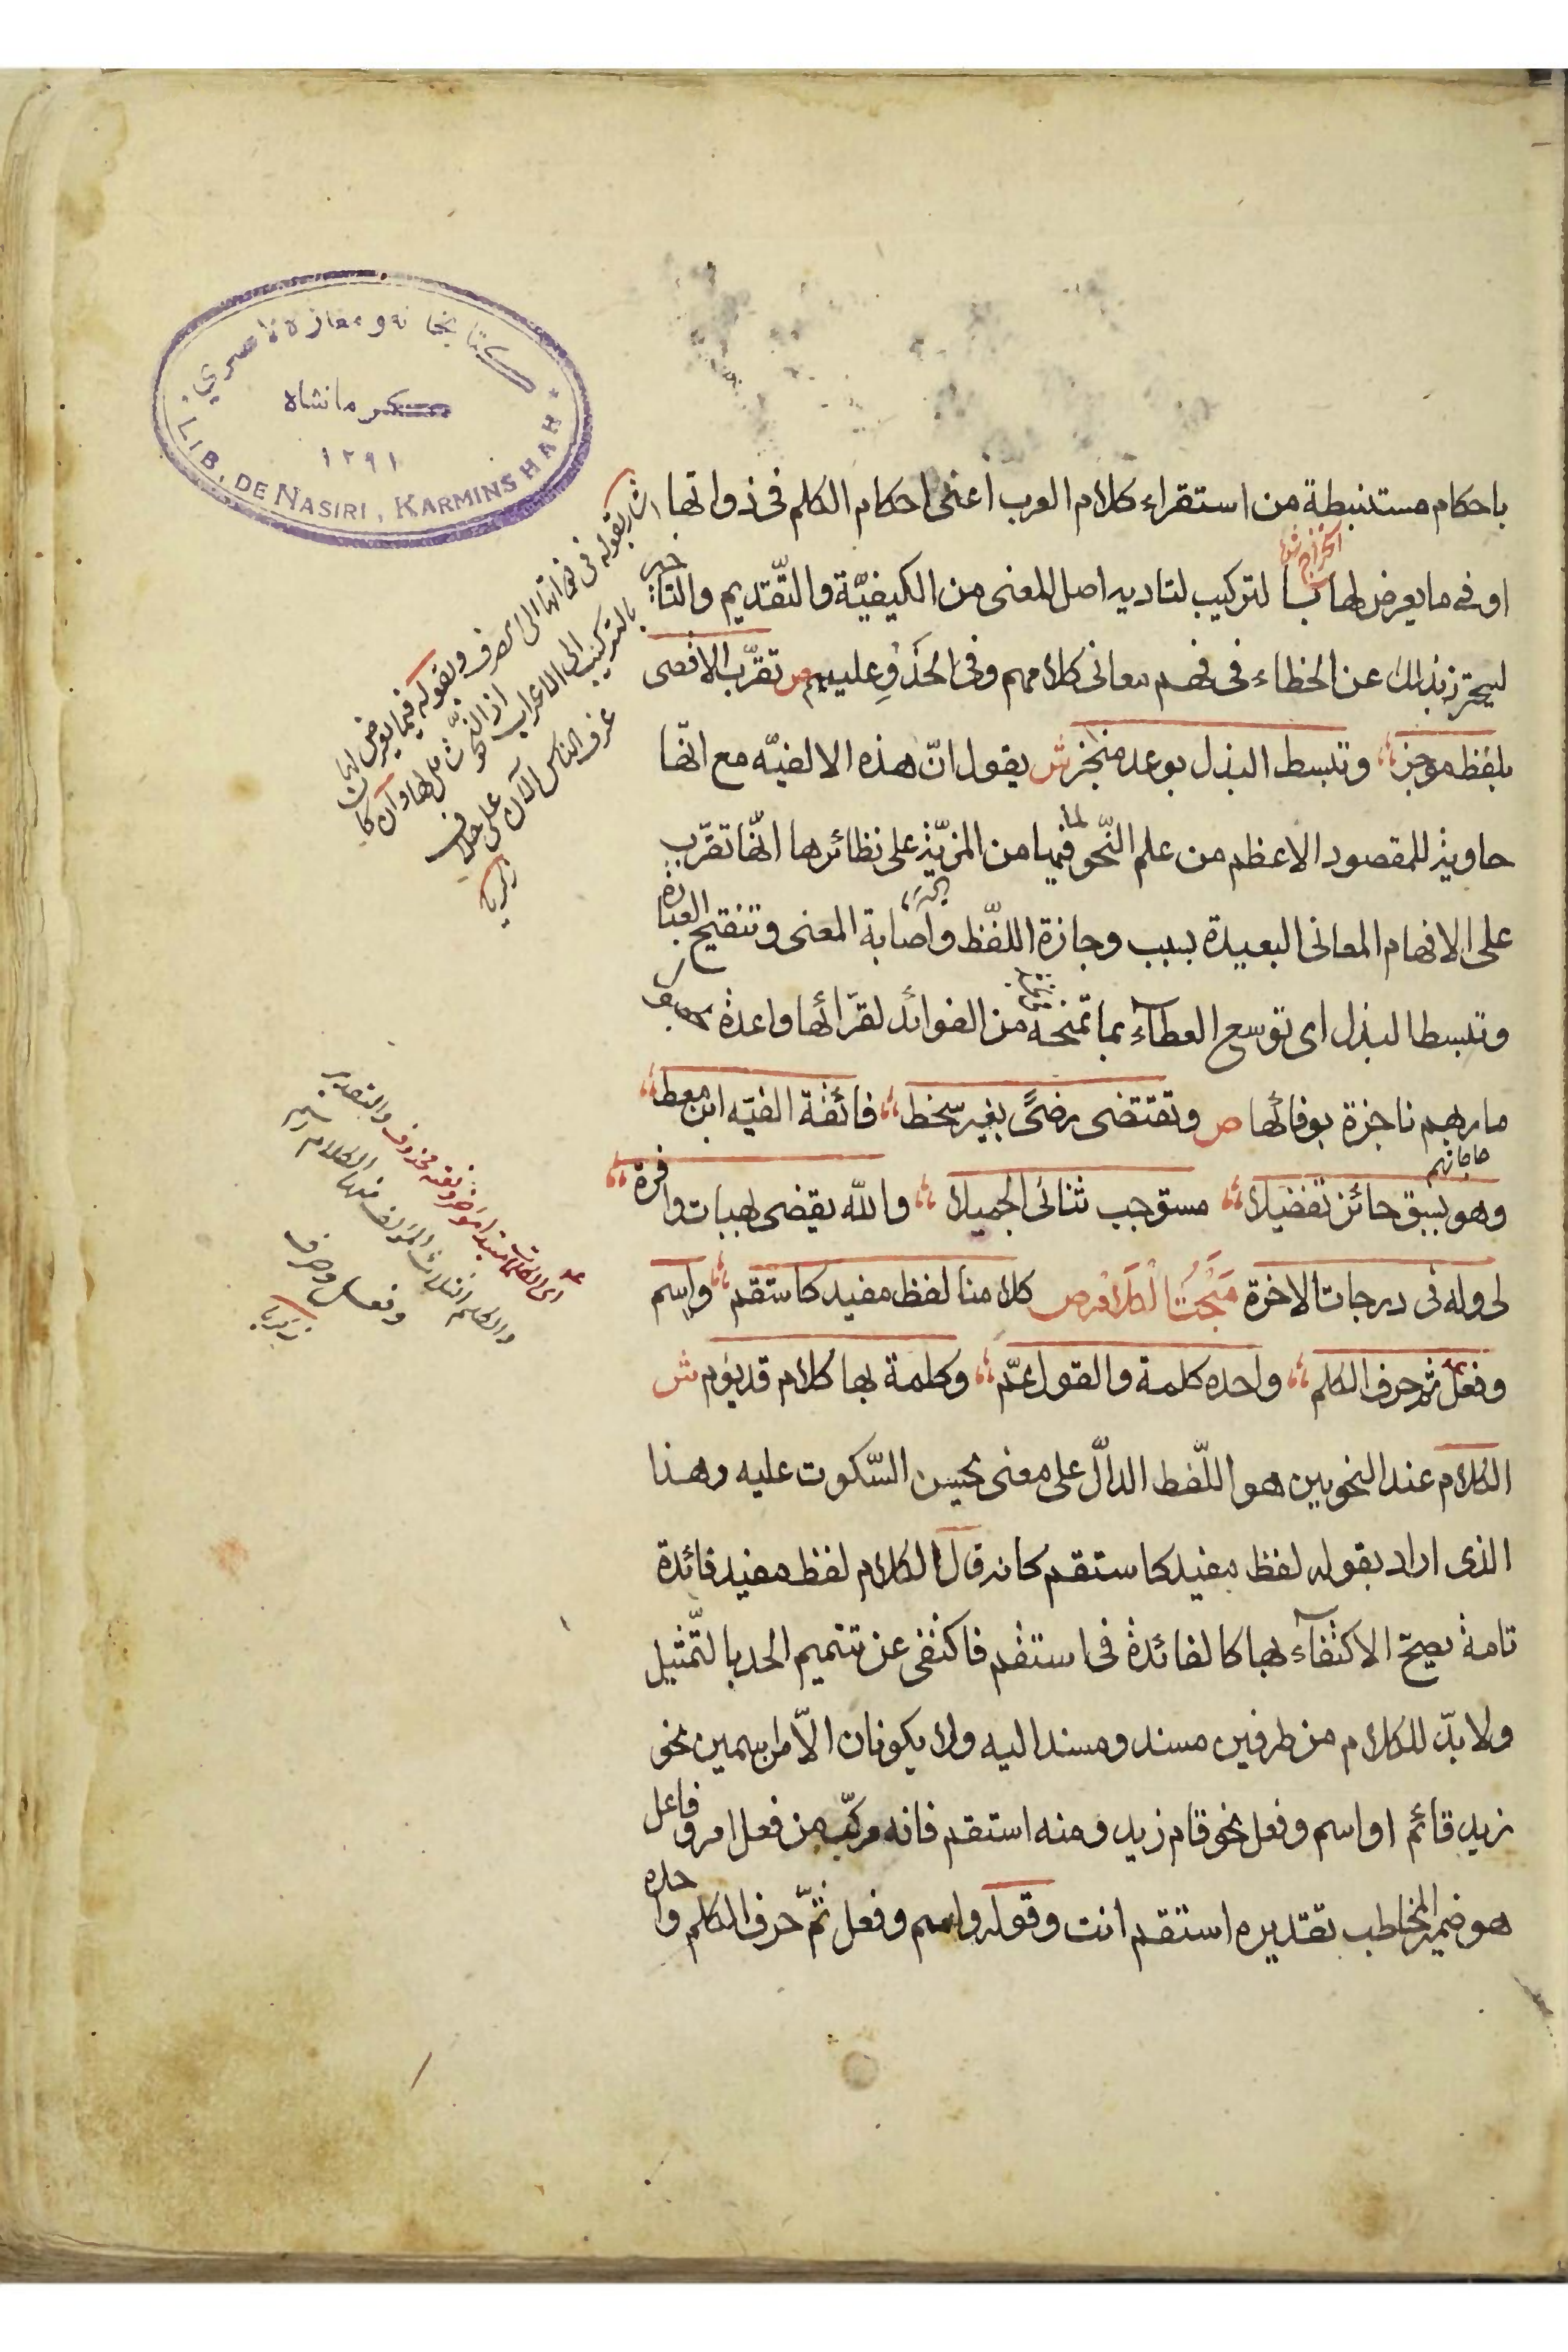 كتابخانه و مغازه ناصري
كرمانشاه
١٢٩١
LIB. DE NASIRI, KARMINSHAH
باحكام مستنبطة من استقراء كلام العرب اعنى احكام الكلم فى ذواتها
او فى ما يعرض لها بالتركيب لتاديه اصل المعنى من الكيفيّة والتّقديم والتاخير
ليحترز بذلك عن الخطاء فى فهم معانى كلامهم وفى الحَذْوِ عليهم ص تقرّب الاقصى
بلفظ موجز وتبسط البذل بوعد منجز ش يقول انّ هذه الالفيّه مع انّها
حاوية للمقصود الاعظم من علم النّحو لما فيها من المزيّة على نظائرها انّها تقرّب
على الافهام المعانى البعيدة بسبب وجازة اللفّظ واصابة المعنى وتنقيح العبارة
وتبسط البذل اى توسع العطآء بما تمنحه من الفوائد لقرّائها واعدة بحصول
مآربهم ناجزة بوفائها ص وتقتضى رضىً بغير سخط فائقة الفيّه ابن معط
حاجاتهم
وهو بسبق حائز تفضيلا مستوجب ثنائى الجميلا والله يقضى بهبات وافرة
لى وله فى درجات الاخرة مَبْحَثُ الكلام ص كلامنا لفظ مفيد كاستقم واسم
وفعل ثم حرف الكلم واحده كلمة والقول عمّ وكلمة بها كلام قد يؤم ش
الكلام عند النحويين هو اللّفظ الدالّ على معنى يحسن السّكوت عليه وهذا
الذى اراد بقوله لفظ مفيد كاستقم كانه قال الكلام لفظ مفيد فائدة
تامة يصحّ الاكتفآء بها كالفائدة فى استقم فاكتفى عن تتميم الحد بالتّمثيل
ولا بدّ للكلام من طرفين مسند ومسند اليه ولا يكونان الّا من اسمين نحو
زيد قائم او اسم وفعل نحو قام زيد ومنه استقم فانه مركّب من فعل امر وفاعل
هو ضمير المخاطب تقديره استقم انت وقوله واسم وفعل ثمّ حرف الكلم واحده
اشار بقوله فى ذواتها الى الصرف وبقوله فيما يعرض لها
بالتركيب الى الاعراب اذ النحو
عرف الناس الآن على خلاف